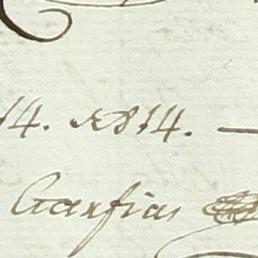 14. 1814. —
Garfias